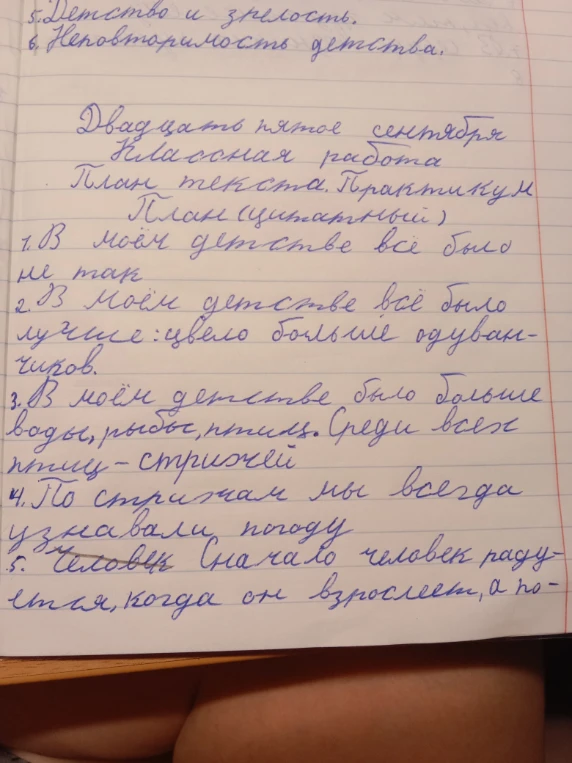 5. Детство и зрелость.
6. Неповторимость детства.
Двадцать пятое сентября
Классная работа
План текста. Практикум
План (цитатный)
1. В моём детстве всё было
не так
2. В моём детстве всё было
лучше: цвело больше одуван-
чиков.
3. В моём детстве было больше
воды, рыбы, птиц. Среди всех
птиц - стрижей
4. По стрижам мы всегда
узнавали погоду
5. Человек Сначало человек раду-
ется, когда он взрослеет, а по-